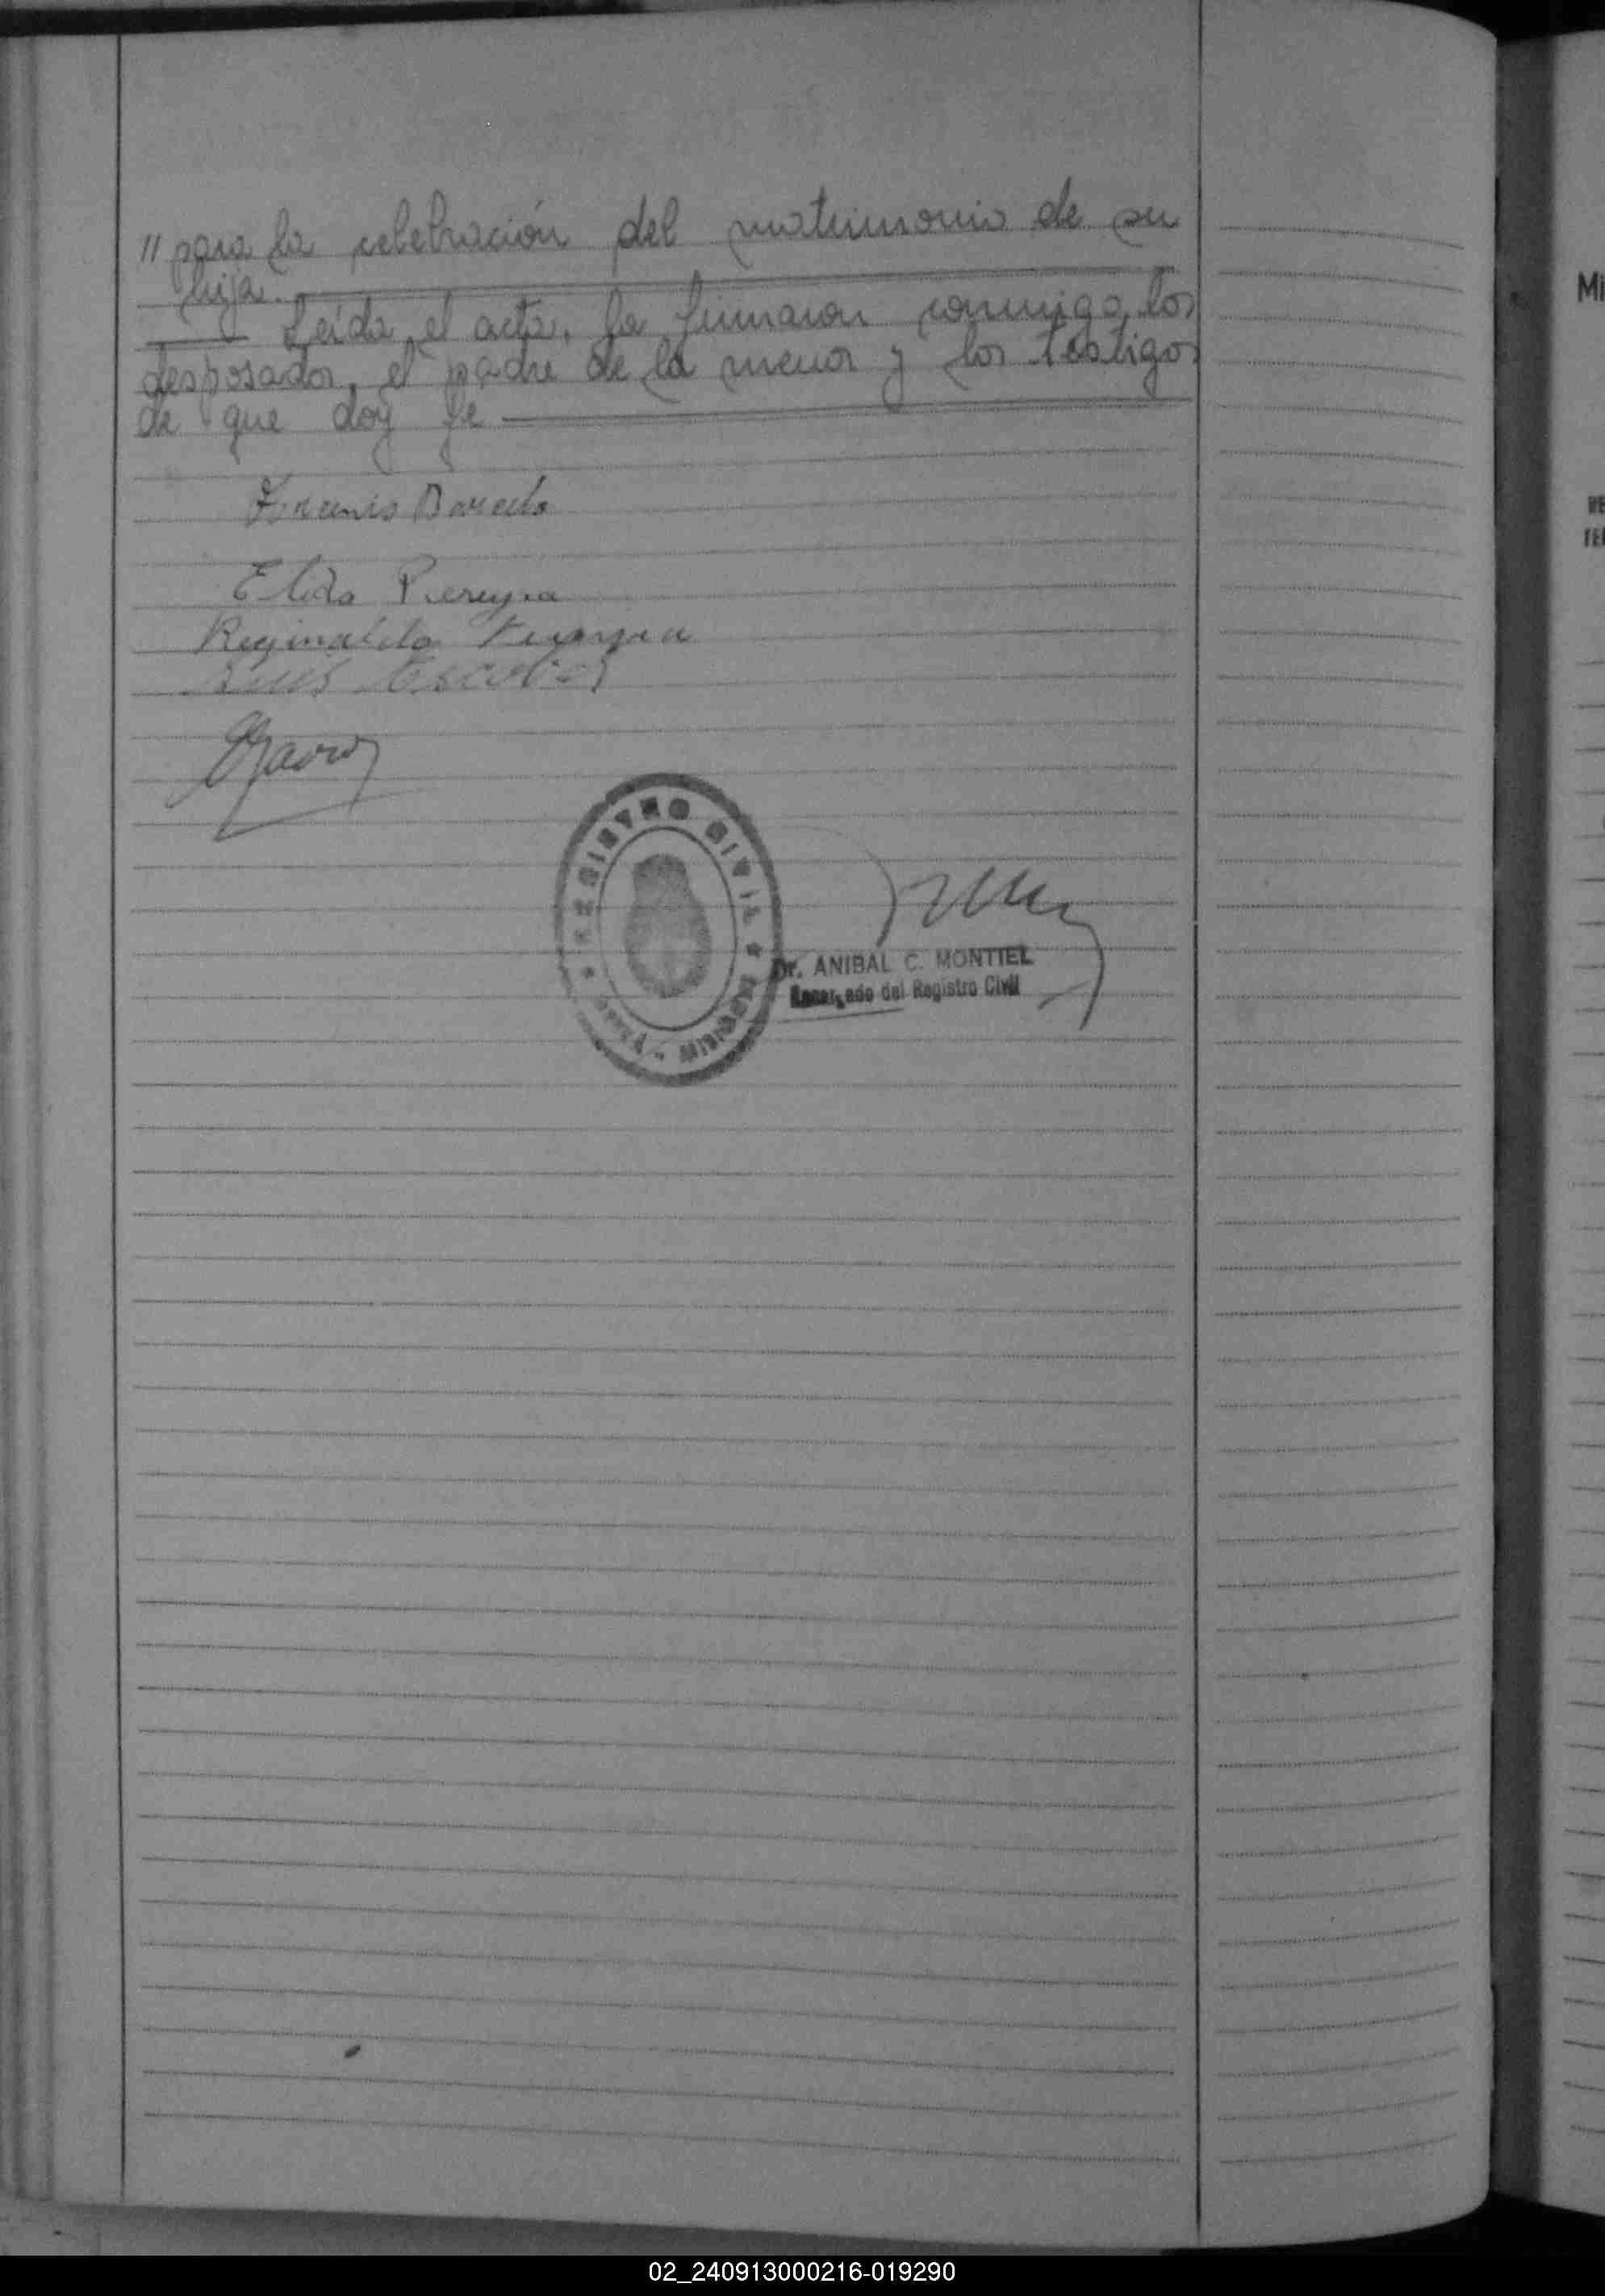 " para la celebración del matrimonio de su
hija.
Leída el acta, la firmaron conmigo, los
desposados, el padre de la menor y los testigos
de que doy fe
Elida Pereyra
Reginaldo
Luis Escobar
REGISTRO CIVIL
MISIONES
Dr. ANIBAL C. MONTIEL
Encargado del Registro Civil
Mi
RE
TE
02_240913000216-019290